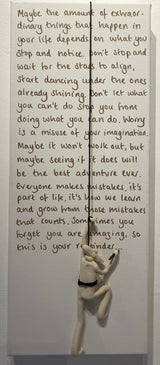 Maybe the amount of extraor-
dinary things that happen in
your life depends on what you
stop and notice. Don't stop and
wait for the stars to align,
start dancing under the ones
already shining. Don't let what
you can't do stop you from
doing what you can do. Worry
is a misuse of your imagination.
Maybe it won't work out, but
maybe seeing if it does will
be the best adventure ever.
Everyone makes mistakes, it's
part of life, it's how we learn
and grow from those mistakes
that counts. Sometimes you
forget you are amazing, so
this is your reminder.